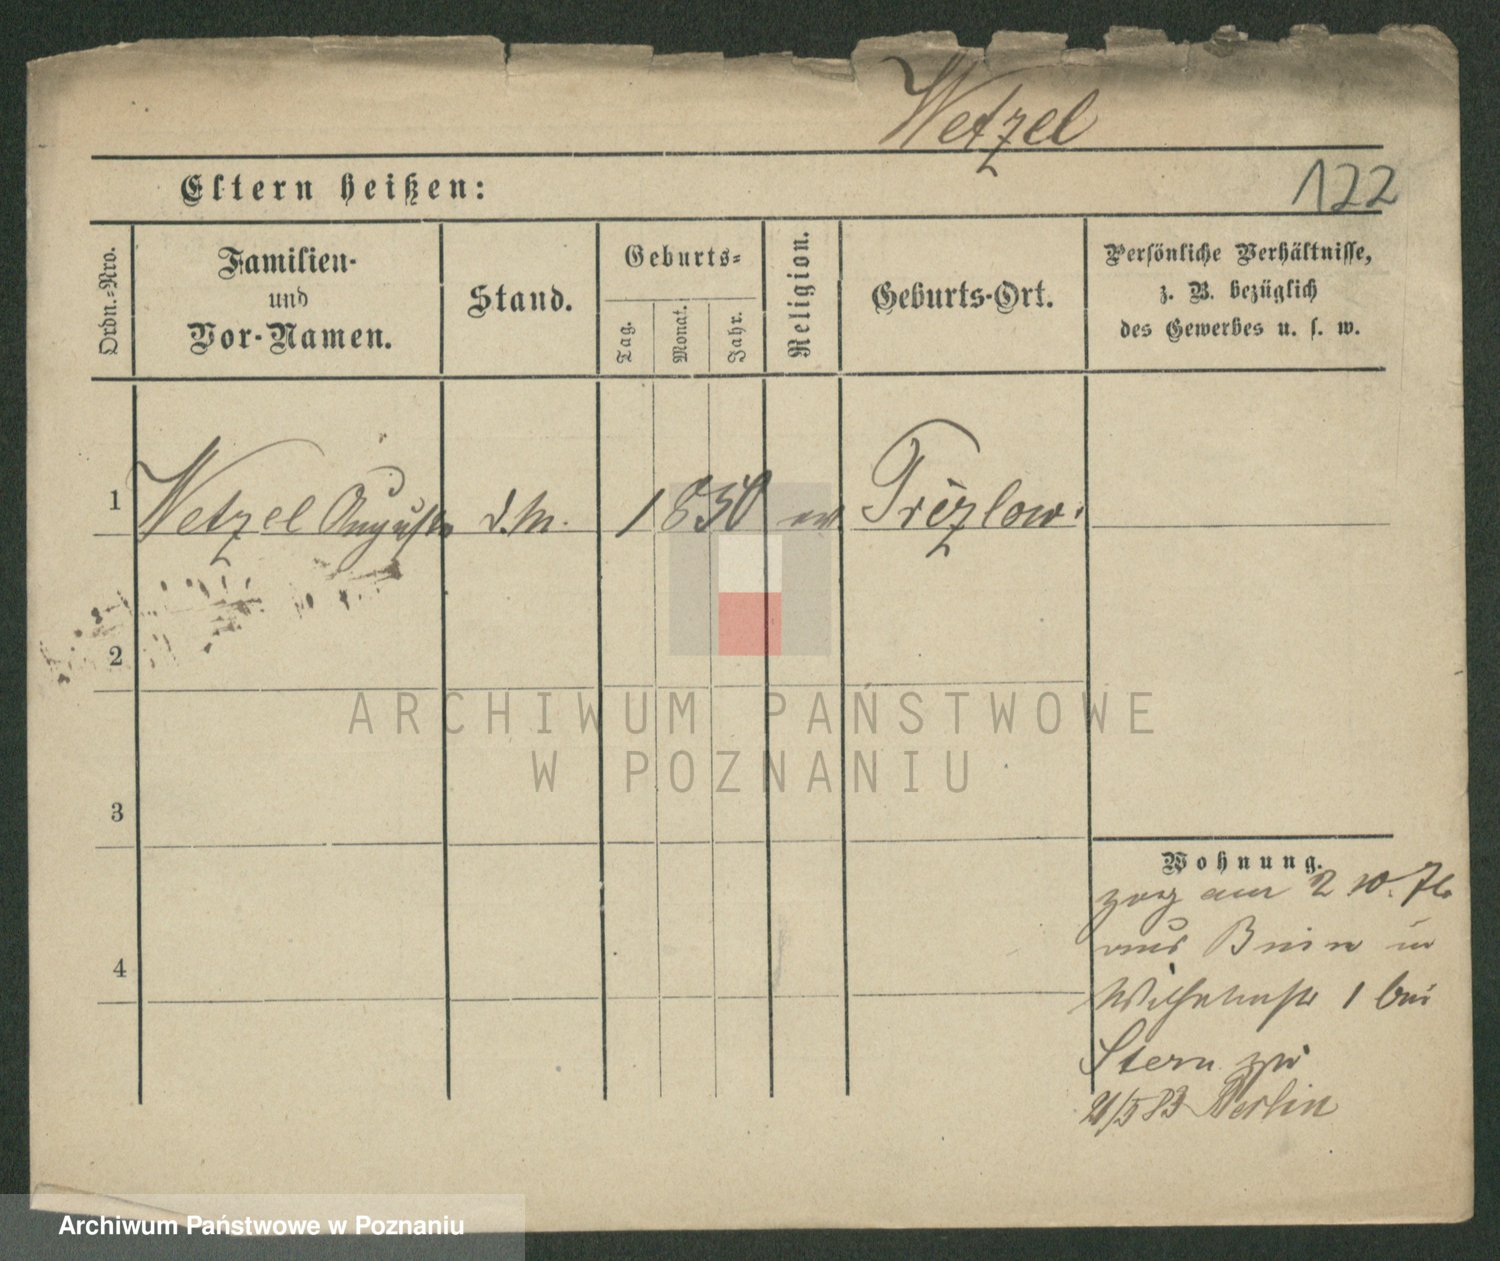 Wetzel
122
Eltern heißen:
Ordn.-Nro.
Familien-
und
Vor-Namen.
Stand.
Geburts-
Tag.
Monat.
Jahr.
Religion.
Geburts-Ort.
Persönliche Verhältnisse,
z. B. bezüglich
des Gewerbes u. s. w.
1
Wetzel Auguste
d.M.
1850
ev
2
3
4
Wohnung.
zog am 2 10. 76
aus Bnin in
Wilhelmstr 1 bei
Stern zu
21/5 83 Berlin
ARCHIWUM PAŃSTWOWE
W POZNANIU
Archiwum Państwowe w Poznaniu